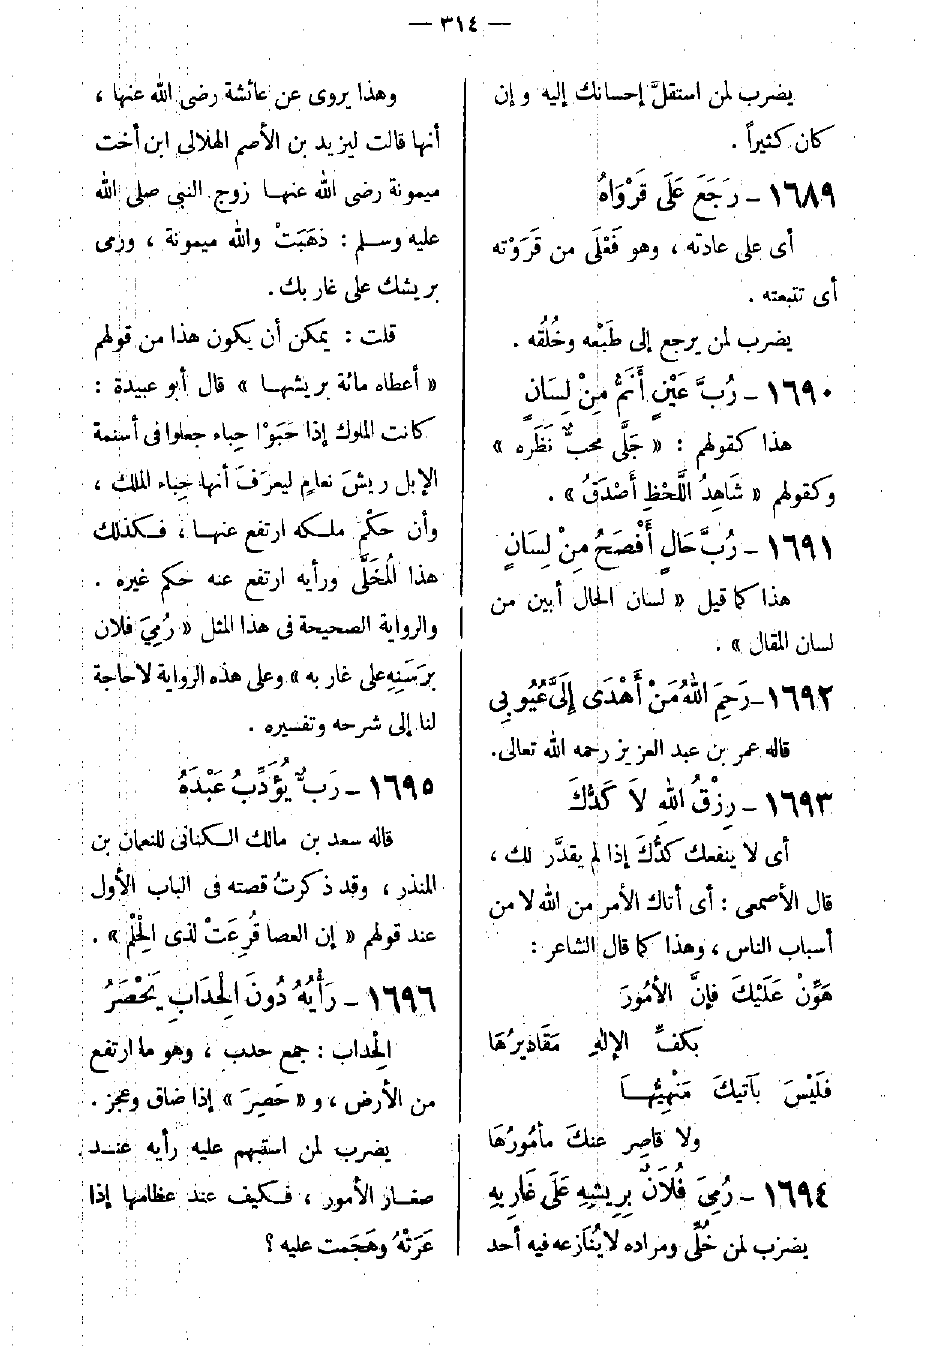 — ٣١٤ —
يضرب لمن استقلَّ إحسانك إليه و إن
كان كثيراً .
١٦٨٩ – رَجَعَ عَلَى قَرْوَاهُ
أى على عادته ، وهو فَعْلَى من قَرَوْته
أى تتبعته .
يضرب لمن يرجع إلى طَبْعه وخُلُقه .
١٦٩٠ – رُبَّ عَيْنٍ أَنَمُّ مِنْ لِسَانٍ
هذا كقولهم : « جَلَّى محبٌّ نَظَره »
وكقولهم « شَاهِدُ اللَّحْظِ أَصْدَقُ » .
١٦٩١ – رُبَّ حَالٍ أَفْصَحُ مِنْ لِسَانٍ
هذا كما قيل « لسان الحال أبين من
لسان المقال » .
١٦٩٢–رَحِمَ اللهُ مَنْ أَهْدَى إِلَىَّ عُيُوبِى
قاله عمر بن عبد العزيز رحمه الله تعالى.
١٦٩٣ – رِزْقُ اللهِ لاَ كَدُّكَ
أى لا ينفعك كَدُّكَ إذا لم يقدَّر لك ،
قال الأصمعى : أى أتاك الأمر من الله لا من
أسباب الناس ، وهذا كما قال الشاعر :
هَوِّنْ عَلَيْكَ فإنَّ الأمُورَ
بكفِّ الإلهِ مَقَادِيرُهَا
فَلَيْسَ بآتيكَ مَنْهِيُّهَا
ولا قاصِر عنكَ مأمُورُهَا
١٦٩٤ – رُمِىَ فُلاَنٌ بِرِيشِهِ عَلَى غَارِبِهِ
يضرب لمن خُلِّى ومراده لا يُنَازعه فيه أحد
وهذا يروى عن عائشة رضى الله عنها ،
أنها قالت ليزيد بن الأصم الهلالى ابن أخت
ميمونة رضى الله عنها زوج النبى صلى الله
عليه وسلم : ذهَبَتْ والله ميمونة ، ورُمِى
بريشك على غاربك .
قلت : يمكن أن يكون هذا من قولهم
« أعطاه مائة بريشها » قال أبو عبيدة :
كانت الملوك إذا حَبَوْا حِباء جعلوا فى أسنمة
الإبل ريشَ نعامٍ ليعرَفَ أنها حِباء الملك ،
وأن حكْمَ ملكه ارتفع عنها ، فكذلك
هذا المُخَلَّى ورأيه ارتفع عنه حكم غيره .
والرواية الصحيحة فى هذا المثل « رُمِىَ فلان
برَسَنِهِ على غاربه » وعلى هذه الرواية لاحاجة
لنا إلى شرحه وتفسيره .
١٦٩٥ – رَبٌّ يُؤَدِّبُ عَبْدَهُ
قاله سعد بن مالك الكنانى للنعمان بن
المنذر ، وقد ذكرتُ قصته فى الباب الأول
عند قولهم « إن العصا قُرِعَتْ لذى الحِلْمِ » .
١٦٩٦ – رَأْيُهُ دُونَ الْحِدَابِ يَحْصَرُ
الحِداب : جمع حدب ، وهو ما ارتفع
من الأرض ، و « حَصِرَ » إذا ضاق وعجز .
يضرب لمن استبهم عليه رأيه عند
صغار الأمور ، فكيف عند عظامها إذا
عَرَتْهُ وهَجَمت عليه ؟